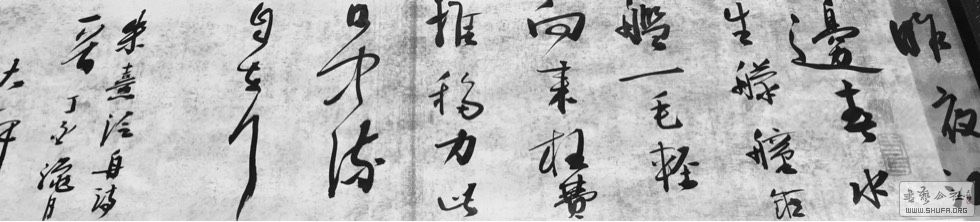 昨夜江
邊春水
生艨艟巨
艦一毛輕
向來枉費
推移力此
日中流
自在行
朱熹泛舟詩
一首 丁亥 月
书艺公社
WWW.SHUFA.ORG